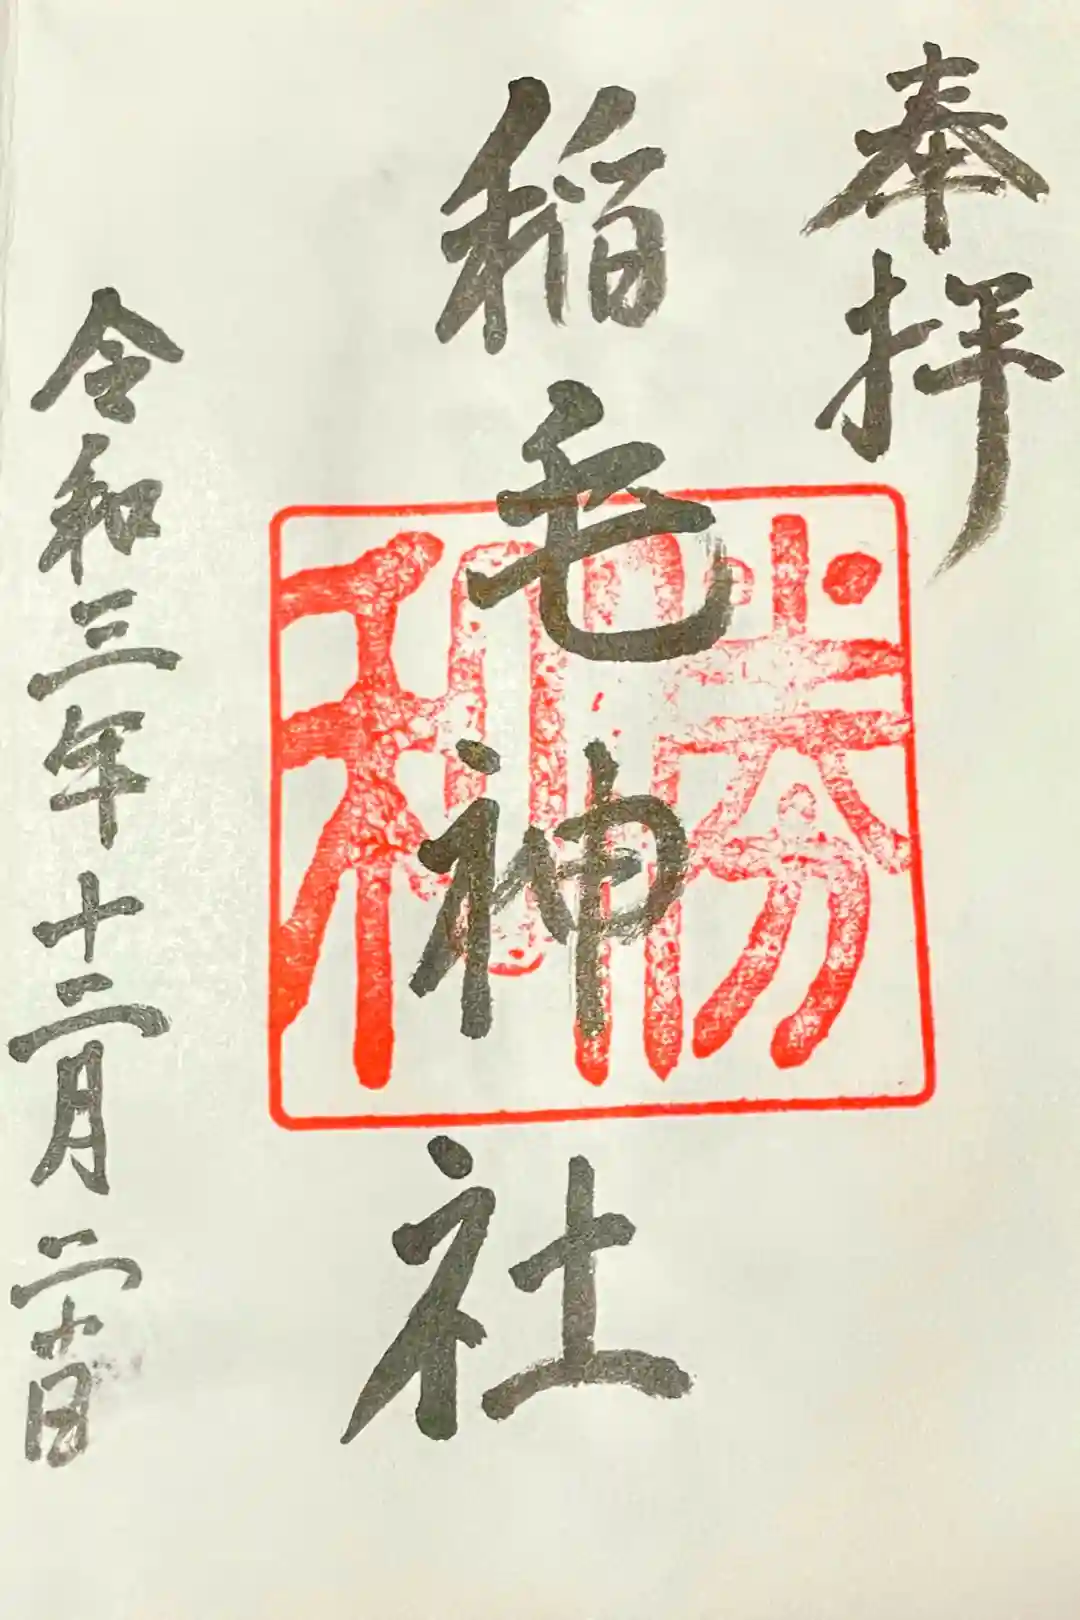 奉拝
稲毛神社
令和三年十二月二十日